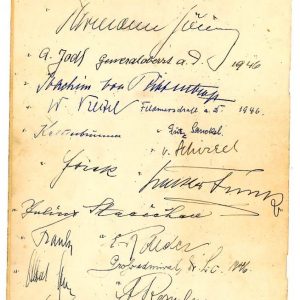 Hermann Göring
A. Jodl Generaloberst a.D. 1946
Joachim von Ribbentrop
W. Keitel Feldmarschall a.D. 1946.
Kaltenbrunner Fritz Sauckel
v. Schirach
Frick Walther Funk
Julius Streicher
Frank E. Raeder
Großadmiral 1946
Albert